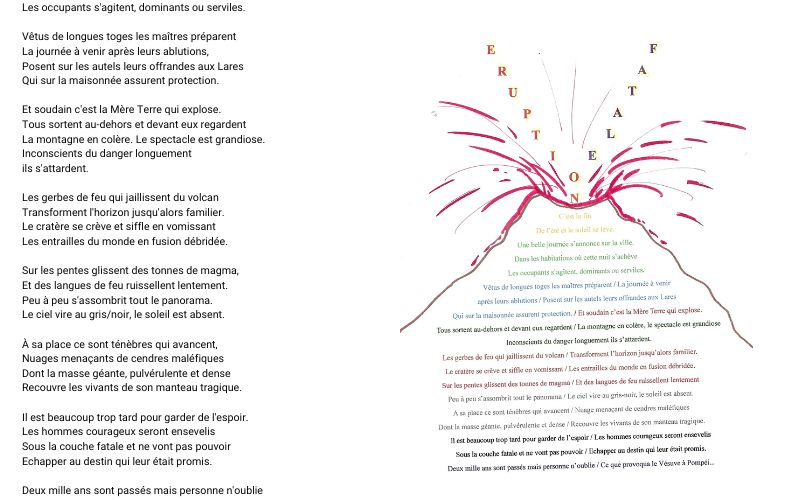 Les occupants s'agitent, dominants ou serviles.
Vêtus de longues toges les maîtres préparent
La journée à venir après leurs ablutions,
Posent sur les autels leurs offrandes aux Lares
Qui sur la maisonnée assurent protection.
Et soudain c'est la Mère Terre qui explose.
Tous sortent au-dehors et devant eux regardent
La montagne en colère. Le spectacle est grandiose.
Inconscients du danger longuement
ils s'attardent.
Les gerbes de feu qui jaillissent du volcan
Transforment l'horizon jusqu'alors familier.
Le cratère se crève et siffle en vomissant
Les entrailles du monde en fusion débridée.
Sur les pentes glissent des tonnes de magma,
Et des langues de feu ruissellent lentement.
Peu à peu s'assombrit tout le panorama.
Le ciel vire au gris/noir, le soleil est absent.
À sa place ce sont ténèbres qui avancent,
Nuages menaçants de cendres maléfiques
Dont la masse géante, pulvérulente et dense
Recouvre les vivants de son manteau tragique.
Il est beaucoup trop tard pour garder de l'espoir.
Les hommes courageux seront ensevelis
Sous la couche fatale et ne vont pas pouvoir
Echapper au destin qui leur était promis.
Deux mille ans sont passés mais personne n'oublie
ERUPTION
FATALE
C'est la fin
De l'été et le soleil se lève.
Une belle journée s'annonce sur la ville.
Dans les habitations où cette nuit s'achève
Les occupants s'agitent, dominants ou serviles.
Vêtus de longues toges les maîtres préparent / La journée à venir
après leurs ablutions / Posent sur les autels leurs offrandes aux Lares
Qui sur la maisonnée assurent protection. / Et soudain c'est la Mère Terre qui explose.
Tous sortent au-dehors et devant eux regardent / La montagne en colère, le spectacle est grandiose
Inconscients du danger longuement ils s'attardent.
Les gerbes de feu qui jaillissent du volcan / Transforment l'horizon jusqu'alors familier.
Le cratère se crève et siffle en vomissant / Les entrailles du monde en fusion débridée.
Sur les pentes glissent des tonnes de magma / Et des langues de feu ruissellent lentement
Peu à peu s'assombrit tout le panorama / Le ciel vire au gris-noir, le soleil est absent.
A sa place ce sont ténèbres qui avancent / Nuage menaçant de cendres maléfiques
Dont la masse géante, pulvérulente et dense / Recouvre les vivants de son manteau tragique.
Il est beaucoup trop tard pour garder de l'espoir / Les hommes courageux seront ensevelis
Sous la couche fatale et ne vont pas pouvoir / Echapper au destin qui leur était promis.
Deux mille ans sont passés mais personne n'oublie / Ce que provoqua le Vésuve à Pompéi...